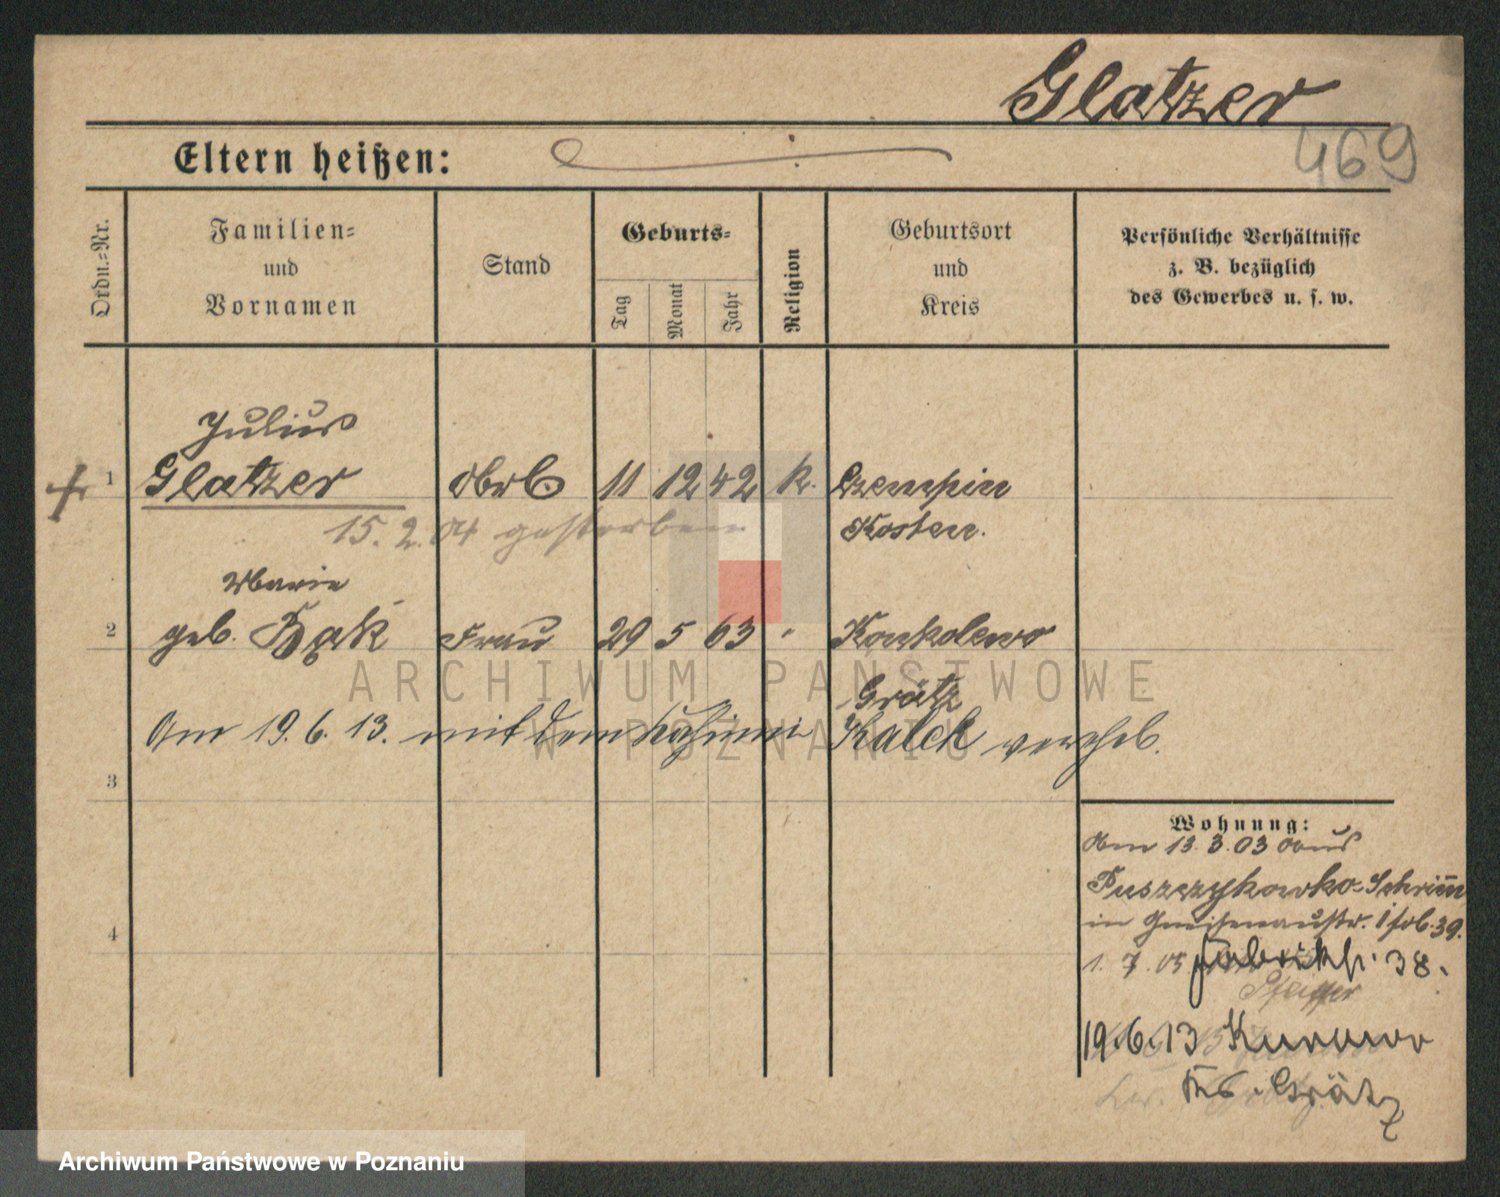 Glatzer
469
Eltern heißen:
Ordn.-Nr.
Familien- und Vornamen
Stand
Geburts-
Tag
Monat
Jahr
Religion
Geburtsort und Kreis
Persönliche Verhältnisse z. B. bezüglich des Gewerbes u. s. w.
Julius
1 Glatzer 11 12 42 k. Czempin
15. 2. 04 gestorben Kosten.
Marie
2 geb. Bąk Frau 29 5 63 " Konkolewo
Grätz
Am 19. 6. 13. mit dem Kalek verehel.
3
4
Wohnung:
Am 13. 3. 03 aus
Puszczykowko-Schrimm
in Gneisenaustr. 39.
1. 7. 05 Fabrikstr. 38.
Pfeiffer
19.6.13
Grätz
ARCHIWUM PAŃSTWOWE
W POZNANIU
Archiwum Państwowe w Poznaniu